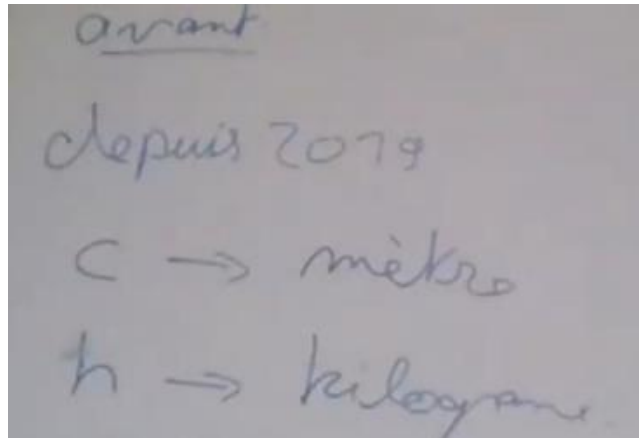 avant
depuis 2019
c → mètre
h → kilogramme